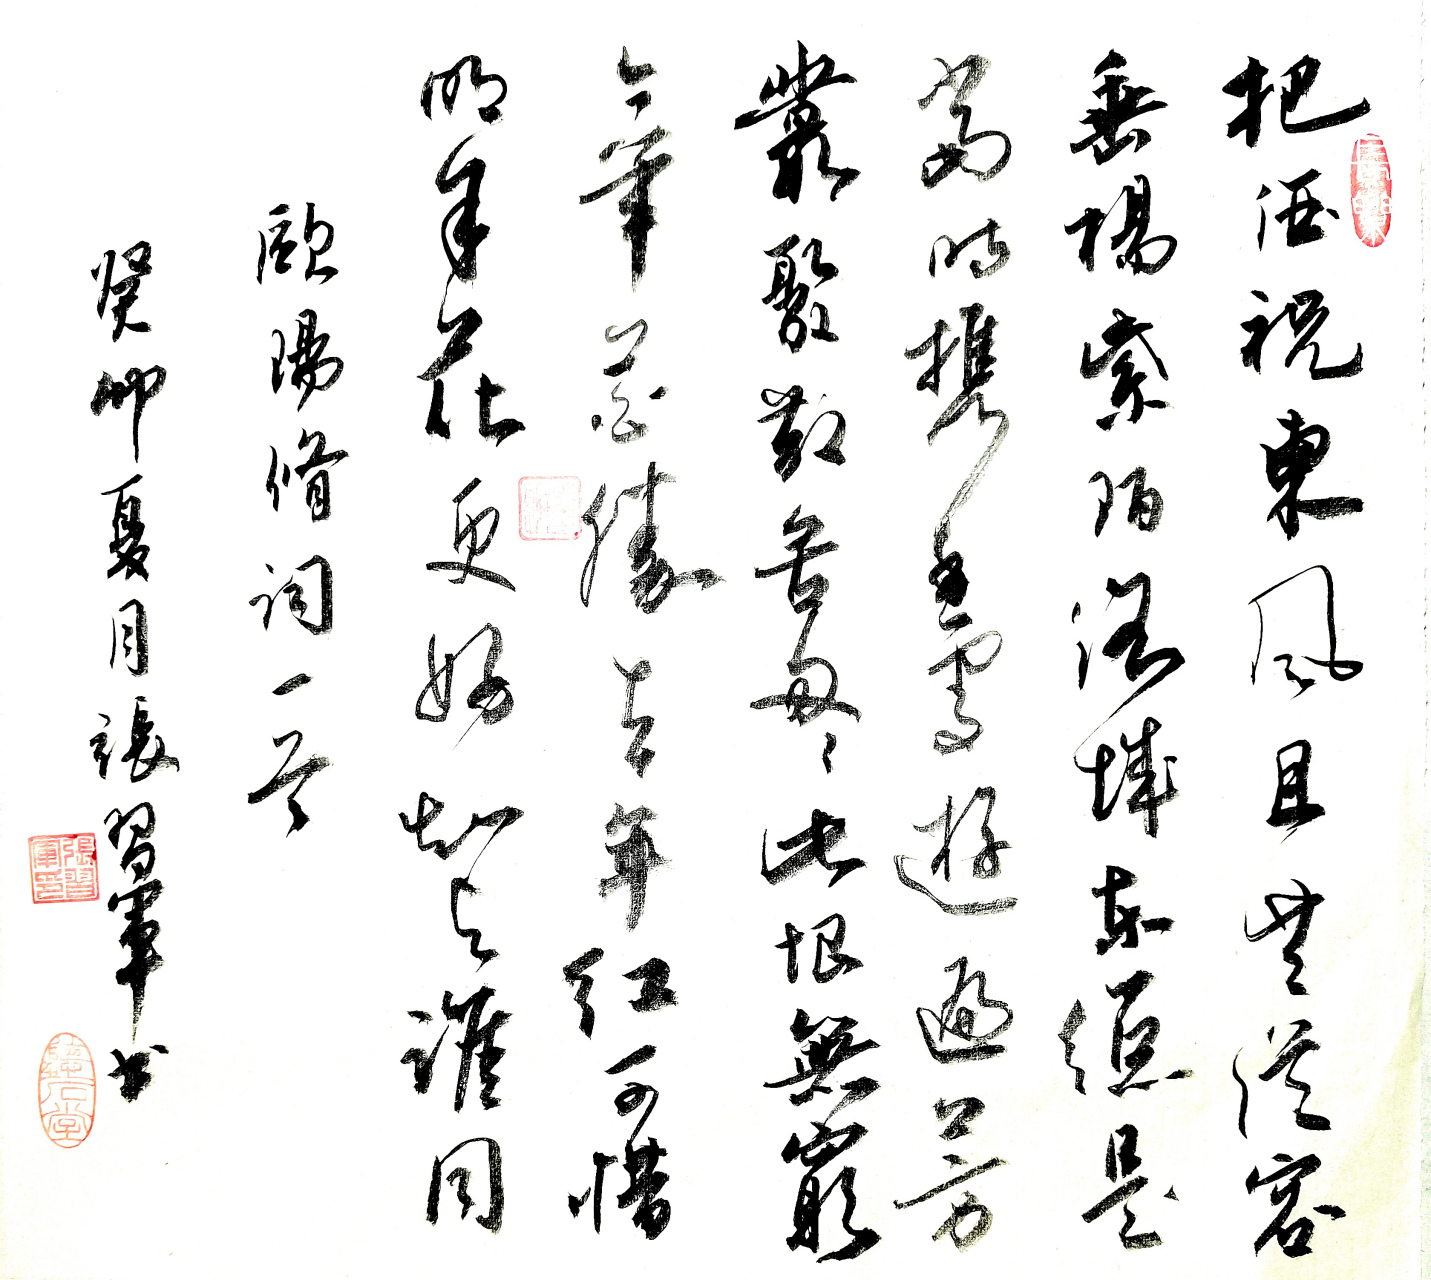 把酒祝東風且共從容
垂楊紫陌洛城東總是
當時攜手處遊遍芳
叢聚散苦匆匆此恨無窮
今年花勝去年紅可惜
明年花更好知與誰同
歐陽修詞一首
癸卯夏月張習軍書
張習軍印
聽石堂